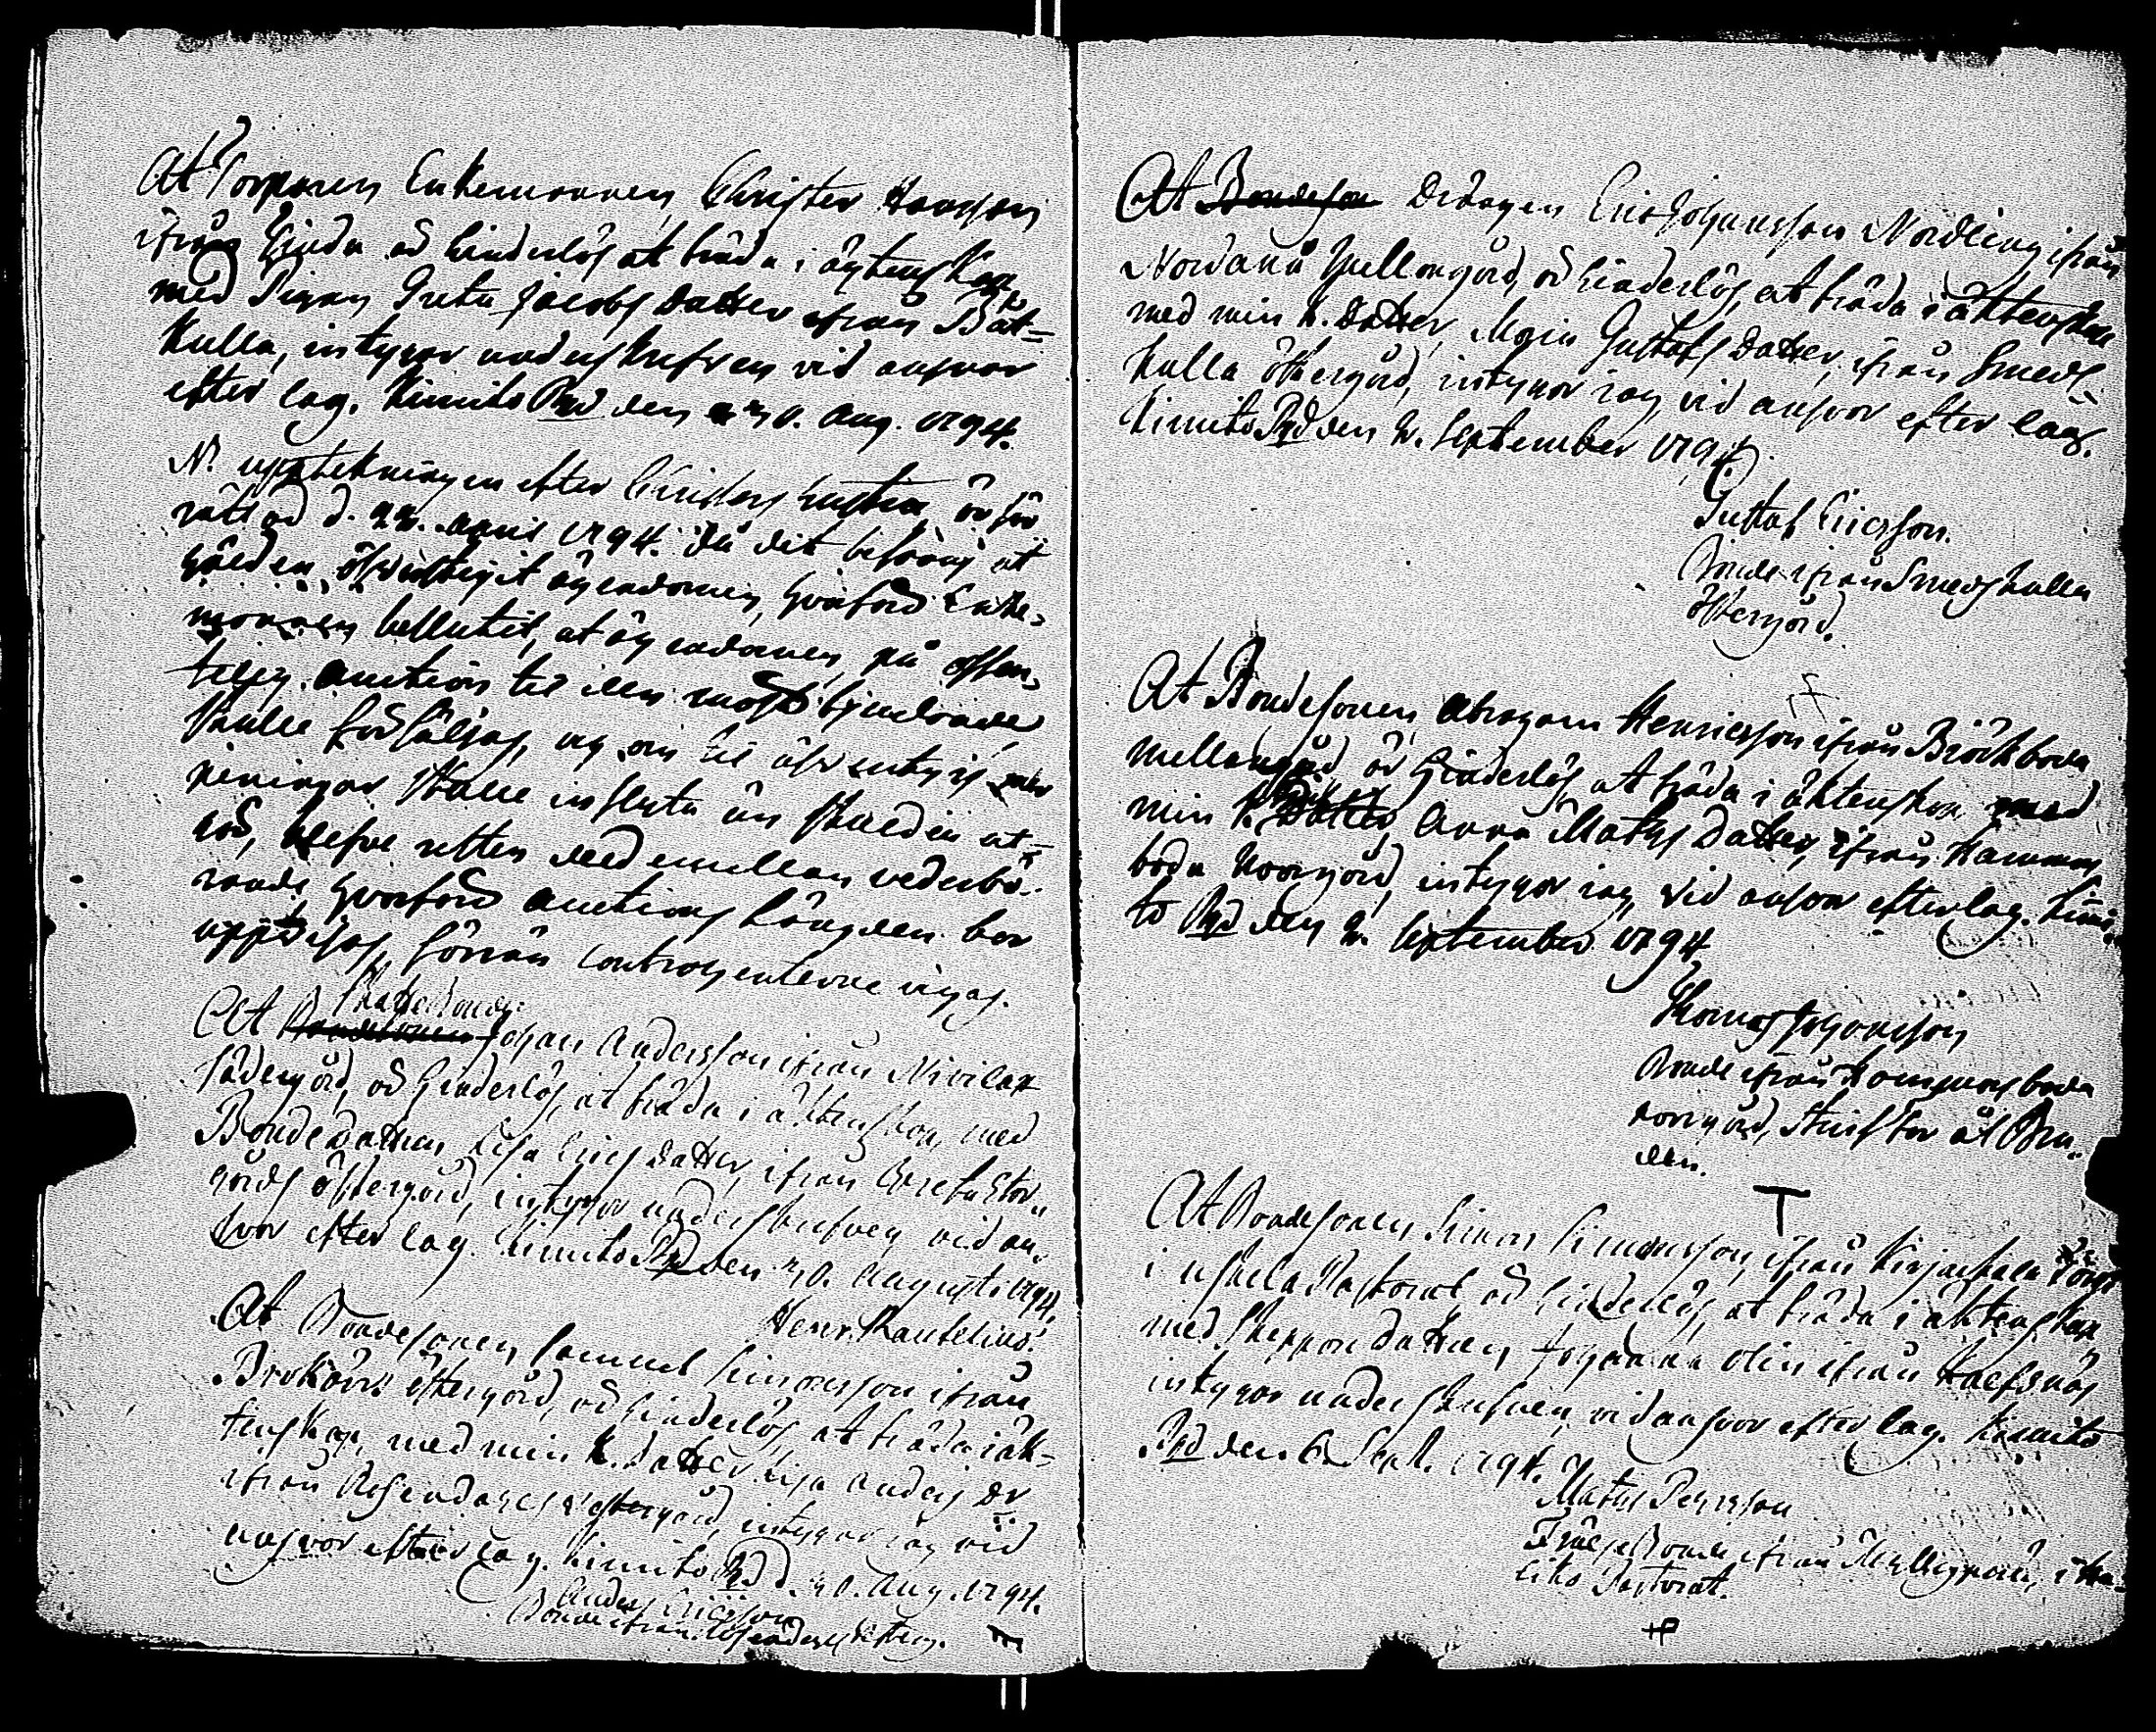 At Torparen Enkemannen Christer Hansson
ifrån är hinderlös at träda i ägtenskap
med Pigan Greta Jacobs Datter ifrån Båt-
kulla, intygar underskrefven vid answar
efter lag. Kimito Pgd den 30. Aug. 1794.
N. upptekningen efter Christers hustru är för
rättad d. 22. April 1794. då det befans at
gälden öfverstigit ägendomen, hvarföre Enke-
mannen beslutit, at ägendomen på offen-
telig auction til den mäst bjudande
skulle försäljas, och om til äfventyrs mer
peningar skulle inflyta än skulden ut-
gör, blefve rätten dem emellan vederbö-
rande hvarföre auctions längden bör
uppvisas, förrän contrahenterne vigas.
Skatte Bonden
At Bondesonen Johan Andersson ifrån Nivilax
södergård, är hinderlös, at träda i äktenskap, med
Bondedatteren Lisa Erics Datter, ifrån Greta Stor-
gårds östergård, intygar underskrefven vid an-
svar efter lag. Kimito Pgd den 30. Augusti 1794.
Henr. Rantelius.
At Bondesonen Samuel Simonsson ifrån
Brokärr östergård, är hinderlös, at träda i äk-
tenskap, med min k. datter Lisa Anders Dr
ifrån Rosendahls westergård, intygar jag vid
answar efter lag. Kimito Pgd d. 30. Aug. 1794.
Anders Ericsson
Bonde ifrån Rosendahls
At Bondeson Drängen Eric Johansson Nordling ifrån
Nordanå Mellangård, är hinderlös, at träda i äktenskap
med min k. Datter, Maria Gustafs Datter, ifrån Smeds-
kulla östergård, intygar jag, vid answar efter lag.
Kimito Pgd den 2. September 1794.
Gustaf Ericsson.
Bonde ifrån Smedskulla
östergård.
At Bondesonen Abraham Henricsson ifrån Bröckboda
mellangård är hinderlös, at träda i äktenskap med
min k. Datter Anna Mats Datter, ifrån Hammars-
boda Norrgård, intygar jag, vid answar efter lag. Kimi-
to Pgd den 2. September 1794
Thomas Johansson
Bonde ifrån Hammarsboda
norrgård, Stiffar åt Bru-
den.
At Bondesonen Simon Simonsson, ifrån
i Uskela Pastorat är hinderlös, at träda i äktenskap
med Skeppardatteren Johanna Olin ifrån Kalfsnäs
intygar underskrefven, vid answar efter lag. Kimito
Pgd den 6. Sept. 1794.
Mats Persson
Frälse Bonde ifrån i Ha-
liko Pastorat.